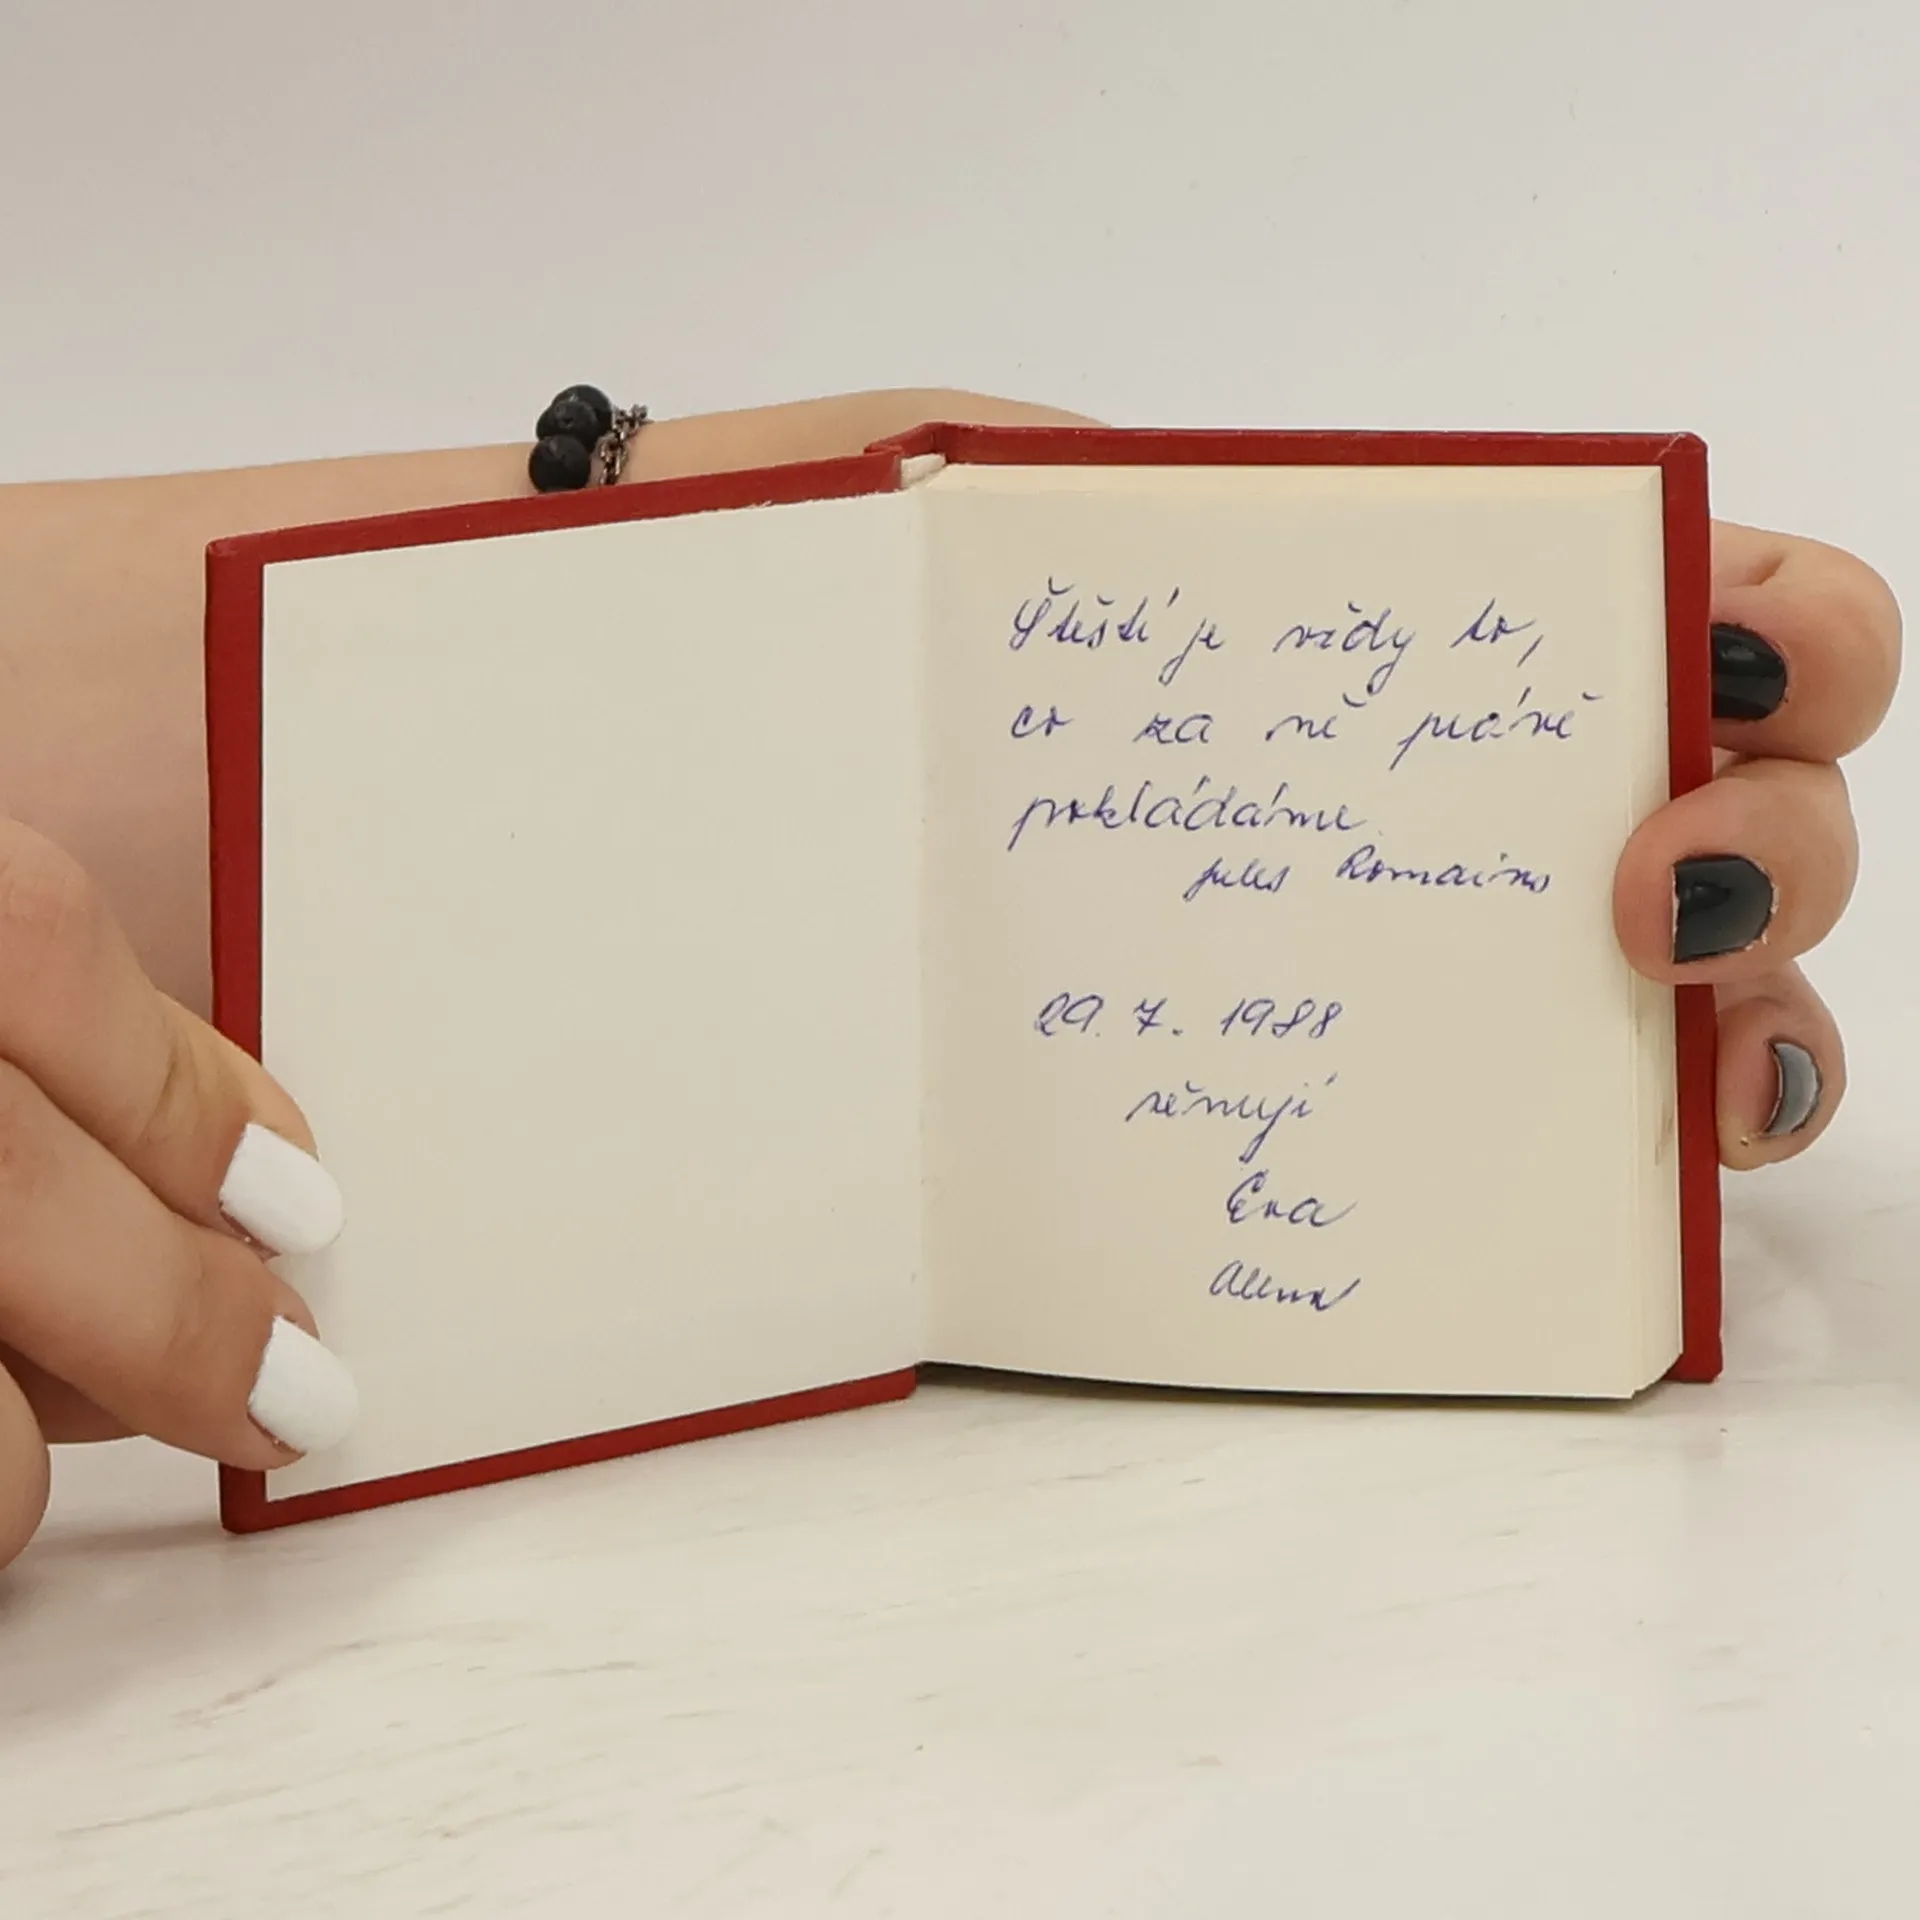 Štěstí je vždy to,
co za ně právě
pokládáme.
Jules Romains
29. 7. 1988
věnují
Eva
Alena